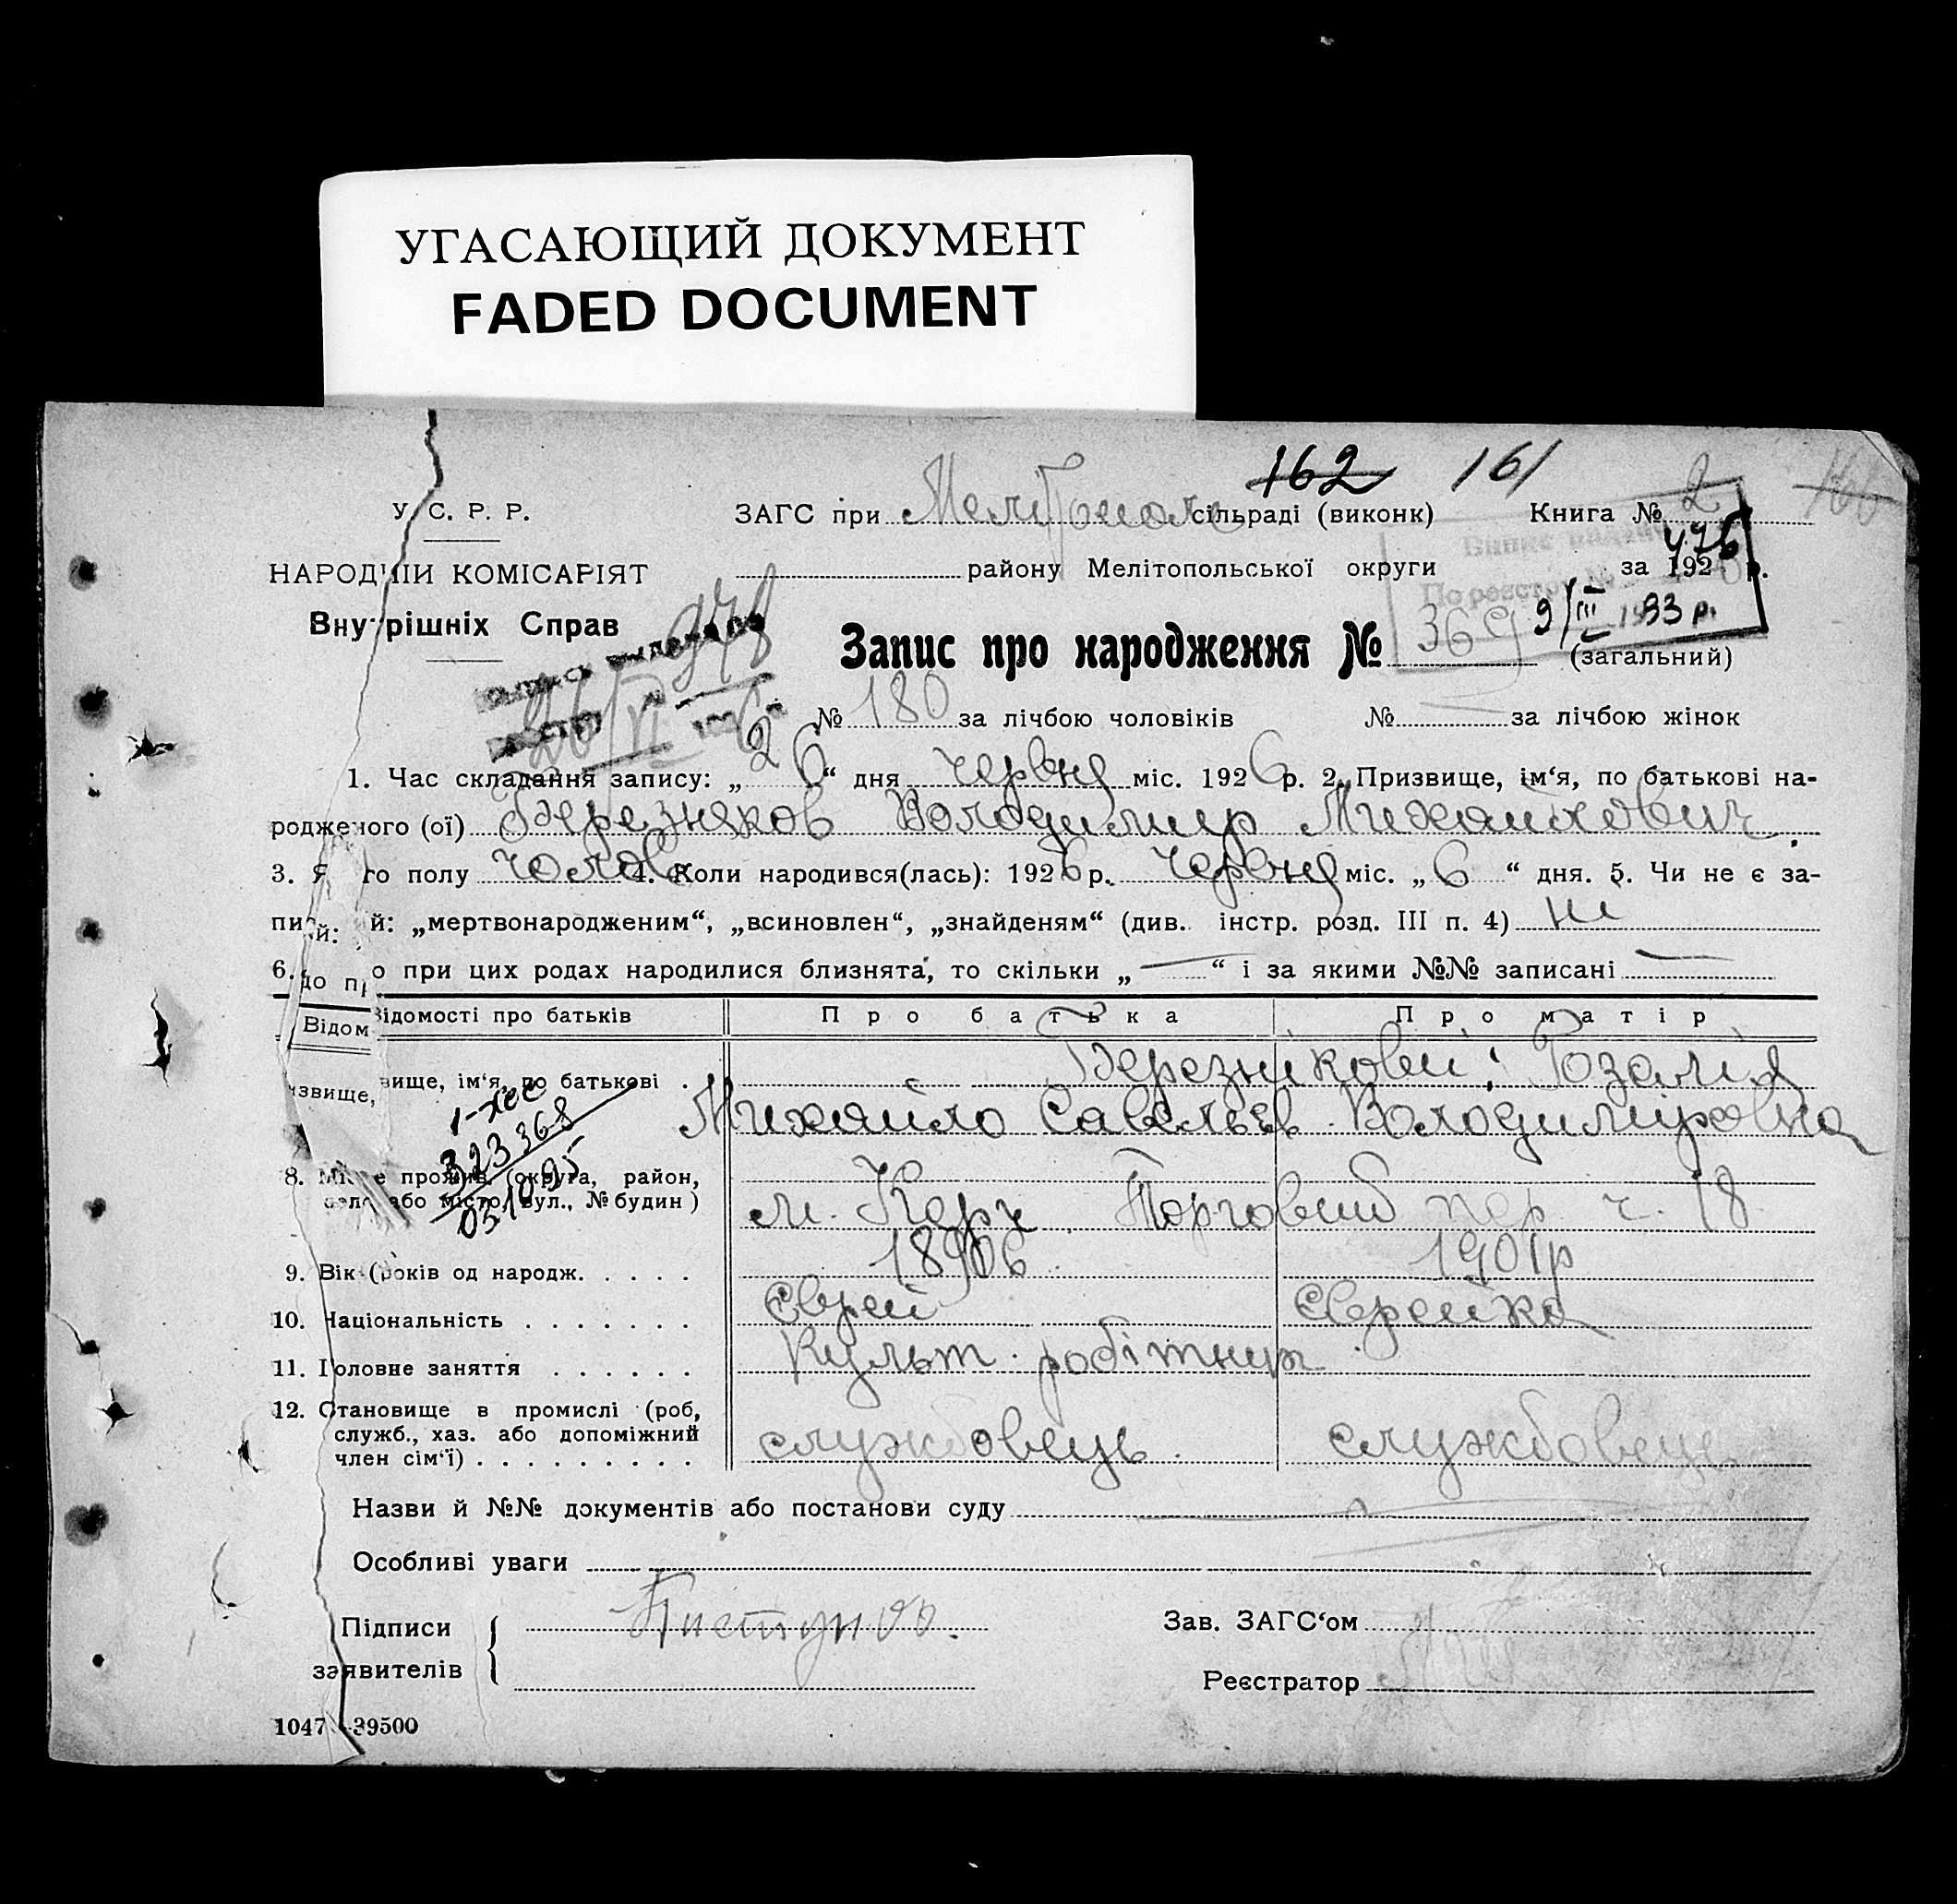 УГАСАЮЩИЙ ДОКУМЕНТ
FADED DOCUMENT
162 161
У. С. Р. Р.
ЗАГС при Мелітополь сільраді (виконк) Книга № 2
НАРОДНІЙ КОМІСАРІЯТ
району Мелітопольської округи за 1926 р.
Внутрішніх Справ
978
9/III 1993 р.
Запис про народження № 369 (загальний)
26/VI
№ 180 за лічбою чоловіків № за лічбою жінок
1. Час складання запису: „26“ дня червня міс. 1926 р. 2. Призвище, ім‘я, по батькові на-
родженого (ої) Березняков Володимир Михайлович
3. Я го полу чолов 4. Коли народився(лась): 1926 р. червня міс. „6“ дня. 5. Чи не є за-
пи й: „мертвонародженим“, „всиновлен“, „знайденям“ (див. інстр. розд. III п. 4) ні
6. о при цих родах народилися близнята, то скільки „—“ і за якими №№ записані —
Відомості про батьків Про батька Про матір
вище, ім‘я, по батькові . Березнікови; Розалія
Михайло Савельєв. Володимировна
323368
05.10.95
8. Місце прожив. (округа, район,
село або місто, вул., № будин)
м. Керч Торговий пер. ч. 18
9. Вік (років од народж. . . . . 1901р
10. Національність . . . . . . . Єврей Єврейка
11. Головне заняття . . . . . . Культ. робітник
12. Становище в промислі (роб,
служб., хаз. або допоміжний
член сім‘ї) . . . . . . . . . службовець. службовець
Назви й №№ документів або постанови суду
Особливі уваги
Підписи
заявителів
Зав. ЗАГС‘ом
Реєстратор
1047 39500